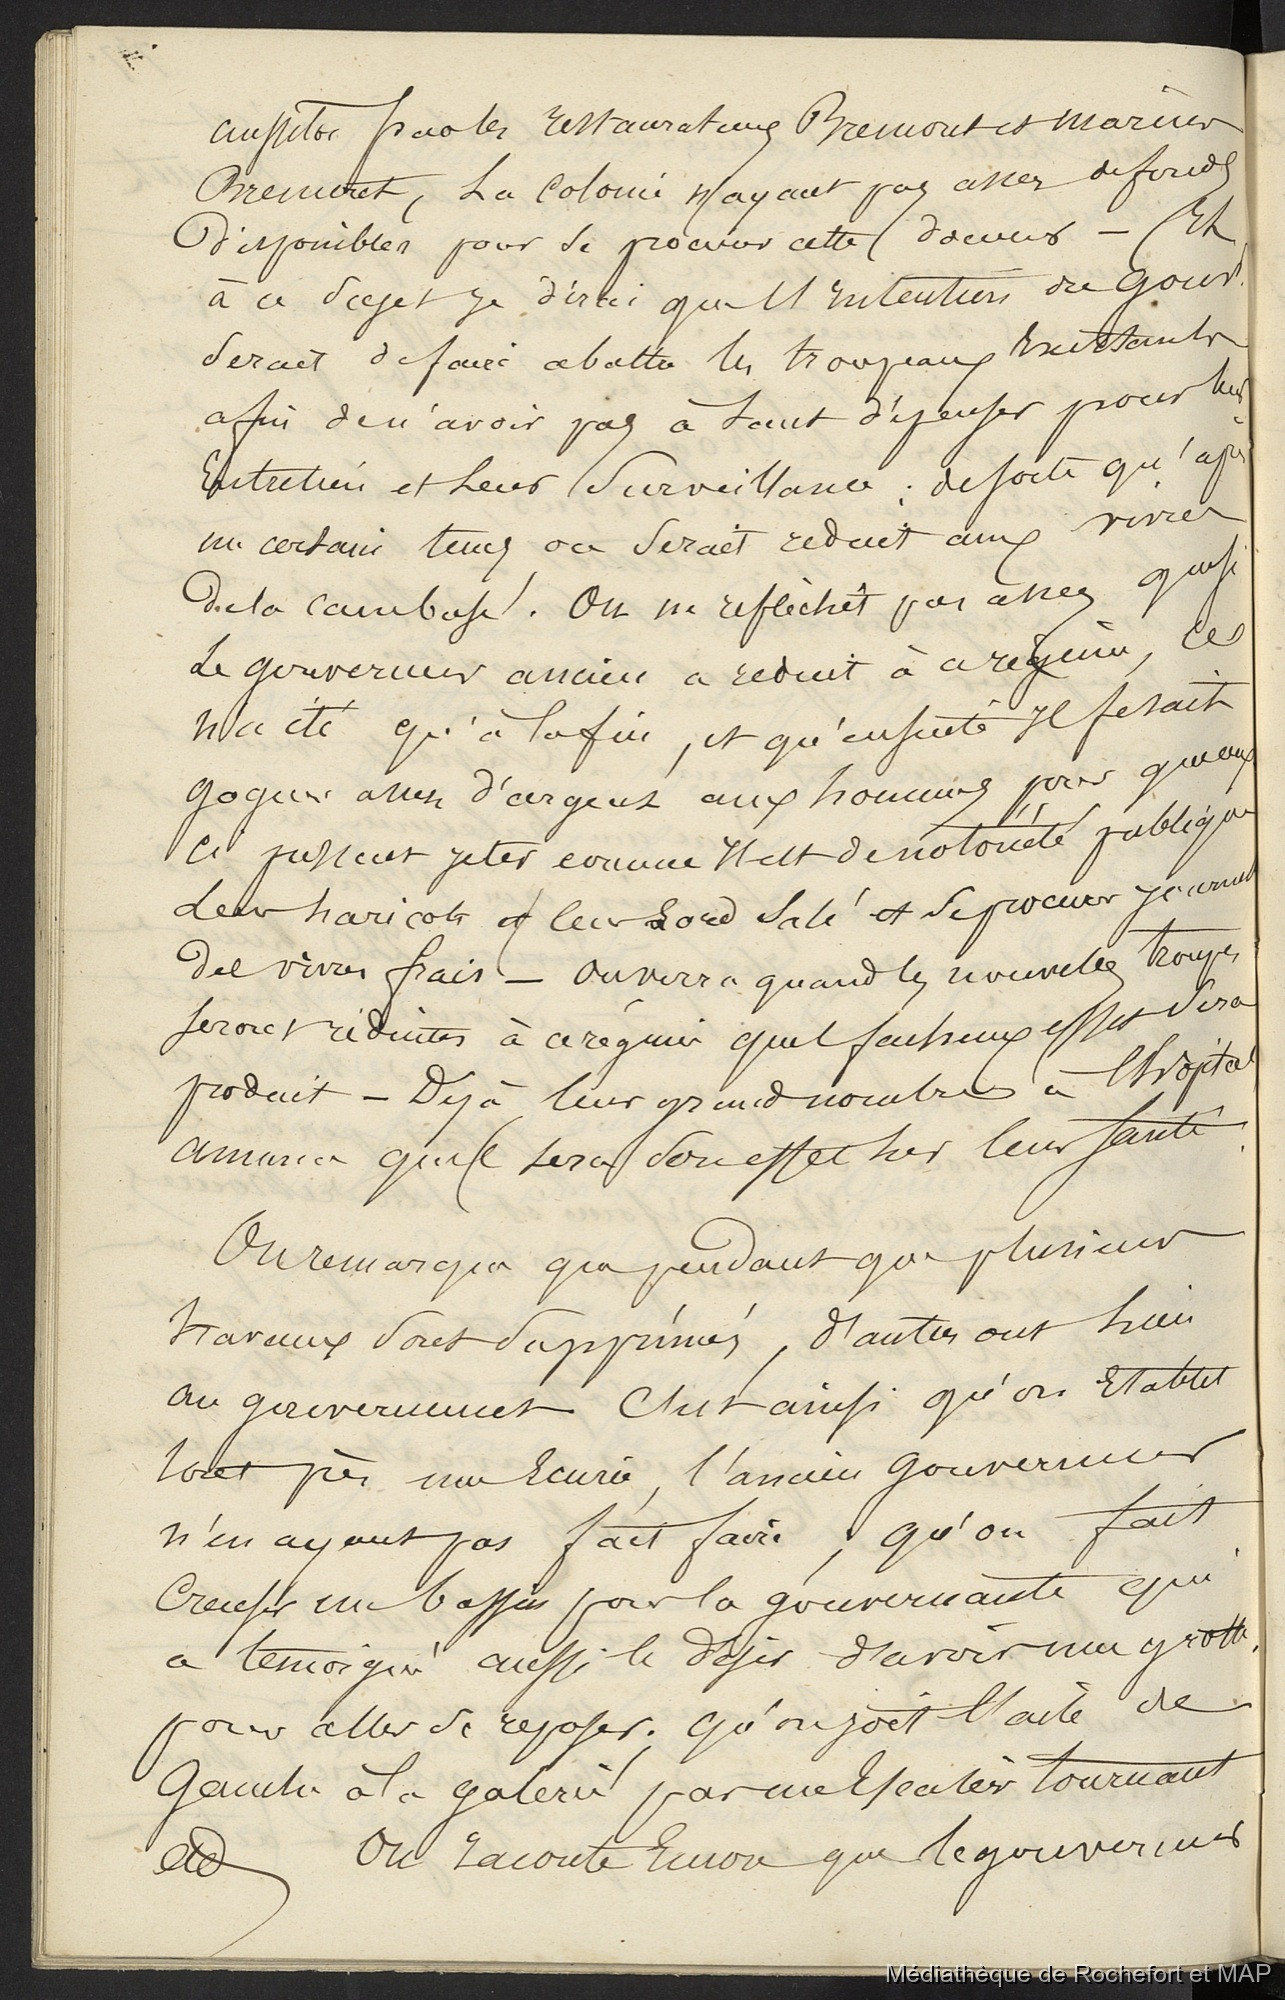 aussitôt par les restaurateurs Bremont et marius
Bremont, La Colonie n'ayant pas assez de fonds
Disponibles pour se procurer cette douceur — Et
à ce sujet je dirai que l'Intention du Gouvr.
Serait de faire abattre les troupeaux Existants
afin de n'avoir pas à tant dépenser pour leur
Entretien et leur Surveillance ; de sorte qu'après
un certain temps on Serait réduit aux vivres
De la cambuse. On ne réfléchit pas assez que si
Le gouverneur ancien a réduit à ce régime, ce
n'a été qu'à la fin, et qu'ensuite Il fesait
gagner assez d'argent aux hommes pour que ceux
ci pussent jeter comme Il est de notoriété publique
Leur haricots et leur Lard Salé et se procurer
Des vivres frais — on verra quand les nouvelles troupes
seront réduites à ce régime quel facheux effet Sera
produit — Déjà leur grand nombre à l'hôpital
annonce quel sera Son effet sur leur santé.
On remarque que pendant que plusieurs
travaux Sont Supprimés, d'autres ont lieu
au gouvernement. C'est ainsi qu'on Etablit
tout près une Ecurie, l'ancien Gouverneur
n'en ayant pas fait faire, qu'on fait
Creuser un bassin pour la gouvernante qui
a témoigné aussi le désir d'avoir une grotte
pour aller se reposer. qu'on joit l'aile de
Gauche à la galerie par un Escalier tournant
etc On raconte Encore que le gouverneur
Médiathèque de Rochefort et MAP